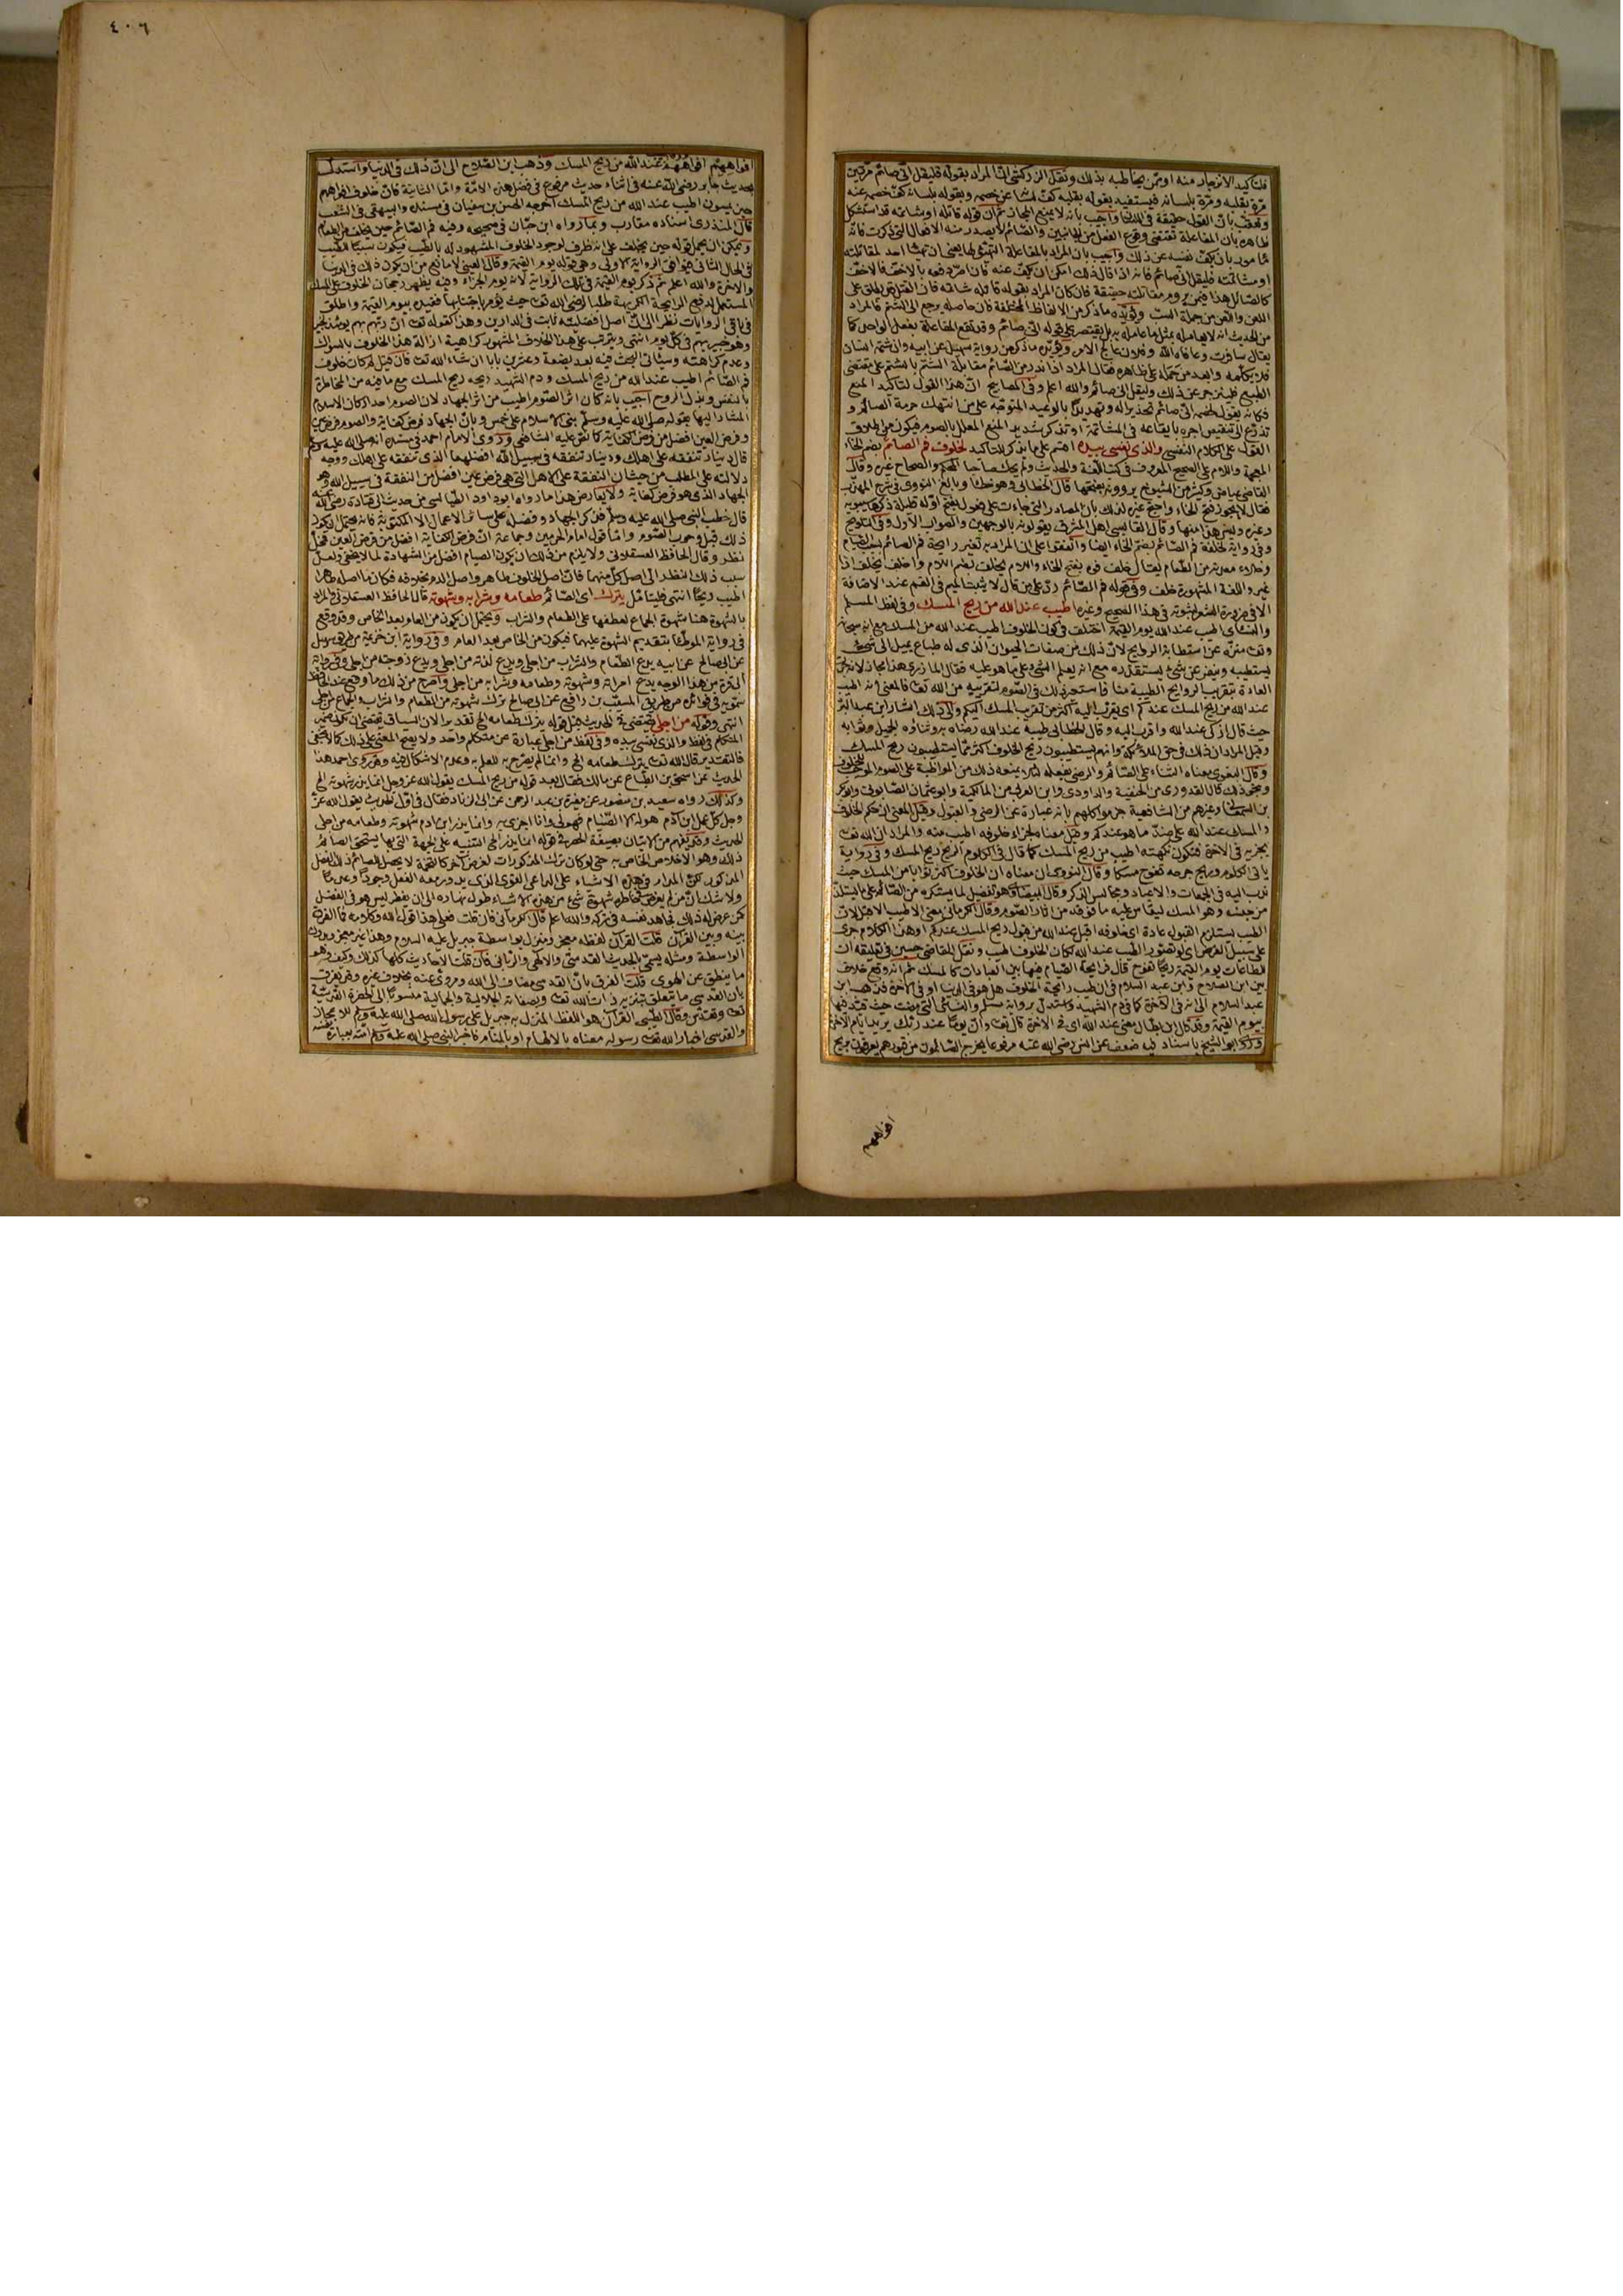 فلتأكيد الانزجار منه او ممن يخاطبه بذلك ونقل الزركشي انّ المراد بقوله فليقل اني صائم مرّتين
مرّة بقلبه ومرّة بلسانه فيستفيد بقوله بقلبه كفّ لسانه عن خصمه وبقوله بلسانه كفّ خصمه عنه
وتعقّب بانّ القول حقيقة في اللسان واجيب بانه لا يمنع المجاز ثم ان قوله قاتله او شاتمه قد استشكل
ظاهره بان المفاعلة تقتضي وقوع الفعل من الجانبين والصّائم لا يصدر منه الافعال التي ذكرت فانه
مأمور بان يكفّ نفسه عن ذلك واجيب بان المراد بالمفاعلة التهيّؤ لها يعني ان تهيّأ احد لمقاتلته
او مشاتمته فليقل اني صائم فانه اذا قال ذلك امكن ان يكفّ عنه فان اصرّ دفعه بالاخفّ فالاخفّ
كالصّائل هذا فيمن يروم مقاتلته حقيقة فان كان المراد بقوله قاتله شاتمه فان القتل يطلق على
اللعن واللعن من جملة السبّ ويؤيّده ما ذكر من الالفاظ المختلفة فان حاصله يرجع الى الشتم فالمراد
من الحديث انه لا يعامله بمثل ما عامله به بل يقتصر على قوله انّي صائم وقد تقع المفاعلة بفعل الواحد كما
يقال سافرت وعافاه الله وفلان عالج الامر ويؤيّده ما ذكر من رواية سهيل عن ابيه وان شتمه انسان
فلا يكلّمه وابعد من حمله على ظاهره فقال المراد اذا ندر من الصّائم مقابلة الشتم بالشتم على مقتضى
الطبع فلينزجر عن ذلك وليقل اني صائم والله اعلم وفي المصابيح انّ هذا القول لتأكيد المنع
فكانه يقول لخصمه اني صائم تحذيرا له وتهديدًا بالوعيد المتوجّه على من انتهك حرمة الصّائم و
تذرّع الى تنقيص اجره بايقاعه في المشاتمة او تذكر شديد المنع المعلل بالصوم فيكون من اطلاق
القول على الكلام النفسي والذي نفسي بيده اقسم على ما يذكر للتأكيد لخلوف فم الصائم بضم الخاء
المعجمة واللام على الصحيح المعروف في كتب اللغة والحديث ولم يحك صاحبا المحكم والصحاح غيره وقال
القاضي عياض وكثير من الشيوخ يروونه بفتحها قال الخطابي وهو خطأ وبالغ النووي في شرح المهذّب
فقال لا يجوز فتح الخاء واحتج غيره لذلك بان المصادر التي جاءت على فعول بفتح اوّله قليلة ذكرها سيبويه
وغيره وليس هذا منها وقال القابسي اهل المشرق يقولونه بالوجهين والصواب الاوّل وفي التلويح
وفي رواية لخلفة فم الصّائم بضمّ الخاء ايضا واتفقوا على ان المراد به تغير رايحة فم الصائم بسبب الصيام
وخلاء معدته من الطّعام يقال خلف فوه بفتح الخاء واللام يخلف بضم اللام واخلف يخلف اذا
تغير واللغة المشهورة خلف وفي قوله فم الصّائم ردّ على من قال لا تثبت الميم في الفم عند الاضافة
الا في ضرورة الشعر لثبوته في هذا الصحيح وغيره اطيب عند الله من ريح المسك وفي لفظ المسلم
والنسائي اطيب عند الله يوم القيمة اختلف في كون الخلوف اطيب عند الله من المسك مع انه سبحانه
وتعـ منزّه عن استطابة الروايح لانّ ذلك من صفات الحيوان الذي له طباع يميل الى شيء
يستطيبه وينفر عن شيء يستقذره مع انه يعلم الشيء على ما هو عليه فقال المازري هذا مجاز لانه جرت
العادة بتقريب الروايح الطيبة منا فاستعير ذلك في الصّوم لتقريبه من الله تعـ فالمعنى انه اطيب
عند الله من ريح المسك عندكم اي يقرب اليه اكثر من تقريب المسك اليكم والى ذلك اشار ابن عبد البرّ
حيث قال ازكى عند الله واقرب اليه وقال الخطابي طيبه عند الله رضاه به وثناؤه الجميل وثوابه
وقيل المراد ان ذلك في حق الملائكة وانهم يستطيبون ريح الخلوف اكثر ممّا يستطيبون ريح المسك
وقال البغوي معناه الثناء على الصّائم والرضى بفعله لئلا يمنعه ذلك من المواظبة على الصوم الموجب للخلوف
وبنحو ذلك قال القدوري من الحنفية والداودي وابن العربي من المالكية وابو عثمان الصابوني وابو بكر
بن السمعاني وغيرهم من الشافعية جزموا كلهم بانه عبارة عن الرضى والقبول وقيل المعنى ان حكم الخلوف
والمسك عند الله على ضدّ ما هو عندكم وقيل معناه لجزاء خلوفه اطيب منه والمراد ان الله تعـ
يجزيه في الاخرة فتكون نكهته اطيب من ريح المسك كما قال في الكلوم الريح ريح المسك وفي رواية
يأتي الكلوم وريح جرحه تفوح مسكا وقال النووي ان معناه ان الخلوف اكثر ثوابا من المسك حيث
ندب اليه في الجمعات والاعياد ومجالس الذكر وقال البيضاوي هو تفضيل لما يستكره من الصّائم على ما يستلذّ
من جنسه وهو المسك ليقاس عليه ما فوقه من اثار الصّوم وقال الكرماني معنى الاطيب الاقبل لانّ
الطيب يستلزم القبول عادة اي خلوفه اقبل عند الله من قبول ريح المسك عندكم او هذا الكلام جرى
على سبيل الفرض اي لو تصوّر الطيب عند الله لكان الخلوف اطيب ونقل القاضي حسين في تعليقه ان
للطاعات يوم القيمة ريحًا تفوح قال فرايحة الصّيام فيها بين العبادات كالمسك ثم انه وقع خلاف
بين ابن الصلاح وابن عبد السلام في ان طيب رائحة الخلوف هل هو في الدنيا او في الاخرة فذهب ابن
عبد السلام الى انه في الآخرة كما في دم الشهيد واستدلّ برواية مسلم والنسائي التي مضت حيث قيّد فيها
بيوم القيمة وقد قال ابن بطّال معنى عند الله اي في الاخرة قال تعـ وانّ يومًا عند ربّك يريد ايام الآخرة
وذكر ابو الشيخ باسناد فيه ضعف عن انس رضي الله عنه مرفوعا يخرج الصّائمون من قبورهم يعرفون بريح
افواههم
٤٠٦
افواههم افواههم عند الله من ريح المسك وذهب ابن الصّلاح الى انّ ذلك في الدنيا واستدلّ
بحديث جابر رضي الله عنه في اثناء حديث مرفوع في فضل هذه الامّة وامّا الثانية فانّ خلوف افواههم
حين يمسون اطيب عند الله من ريح المسك اخرجه الحسن بن سفيان في مسنده والبيهقي في الشعب
قال المنذري اسناده مقارب وبما رواه ابن حبّان في صحيحه وفيه فم الصّائم حين يخلف من الطعام
ويمكن ان يحمل قوله حين يخلف على انه ظرف لوجود الخلوف المشهود له بالطيب فيكون سببًا للطيب
في الحال الثاني فيوافق الرواية الاولى وهي قوله يوم القيمة وقال العيني لا مانع من ان يكون ذلك في الدنيا
والاخرة والله اعلم ثم ذكر يوم القيمة في تلك الرواية لانه يوم الجزاء وفيه يظهر رجحان الخلوف على المسك
المستعمل لدفع الرايحة الكريهة طلبا لرضى الله تعـ حيث يؤمر باجتنابها فقيده بيوم القيمة واطلق
في باقي الروايات نظرا الى انّ اصل افضليته ثابت في الدارين وهذا كقوله تعـ انّ ربّهم بهم يومئذ لخبير
وهو خبير بهم في كلّ يوم انتهى ويترتب على هذا الخلاف المشهور كراهية ازالة هذا الخلوف بالسواك
وعدم كراهته وسيأتي البحث فيه بعد بضعة وعشرين بابا ان شاء الله تعـ فان قيل لم كان خلوف
فم الصّائم اطيب عند الله من ريح المسك ودم الشهيد ريحه ريح المسك مع ما فيه من المخاطرة
بالنفس وبذل الروح اجيب بانه كان اثر الصّوم اطيب من اثر الجهاد لان الصوم احد اركان الاسلام
المشار اليها بقوله صلى الله عليه وسلم بني الاسلام على خمس وبانّ الجهاد فرض كفاية والصوم فرض عين
وفرض العين افضل من فرض الكفاية كما نصّ عليه الشافعي وروى الامام احمد في مسنده انه صلى الله عليه وسلم
قال دينار تنفقه على اهلك ودينار تنفقه في سبيل الله افضلهما الذي تنفقه على اهلك ووجه
دلالته على المطلب من حيث ان النفقة على الاهل التي هي فرض عين افضل من النفقة في سبيل الله وهو
الجهاد الذي هو فرض كفاية ولا يعارض هذا ما رواه ابو داود الطيالسي من حديث ابي قتادة رضي الله عنه
قال خطب النبي صلى الله عليه وسلم فذكر الجهاد وفضله على سائر الاعمال الا المكتوبة فانه يحتمل ان يكون
ذلك قبل وجوب الصّوم وامّا قول امام الحرمين وجماعة انّ فرض الكفاية افضل من فرض العين فمحل
نظر وقال الحافظ العسقلاني ولا يلزم من ذلك ان يكون الصيام افضل من الشهادة لما لا يخفى ولعلّ
سبب ذلك النظر الى اصل كل منهما فانّ اصل الخلوف طاهر واصل الدم بخلافه فكان ما اصله طاهرا
اطيب ريحًا انتهى فليتأمّل يترك اي الصّائم طعامه وشرابه وشهوته قال الحافظ العسقلاني والمراد
بالشهوة هنا شهوة الجماع لعطفها على الطعام والشراب ويحتمل ان يكون من العام بعد الخاص وقد وقع
في رواية الموطّأ بتقديم الشهوة عليهما فيكون من الخاص بعد العام وفي رواية ابن خزيمة من طريق سهيل
عن ابي صالح عن ابيه يدع الطّعام والشراب من اجلي ويدع لذته من اجلي ويدع زوجته من اجلي وفي رواية
ابي قرة من هذا الوجه يدع امرأته وشهوته وطعامه وشرابه من اجلي واصرح من ذلك ما وقع عند الحافظ
سمّويه في فوائده من طريق المسيّب بن رافع عن ابي صالح ترك شهوته من الطعام والشراب والجماع من اجلي
انتهى وقوله من اجلي يقتضي في الحديث قبل قوله يترك طعامه الخ تقديرا لان السياق يقتضي ان يكون ضمير
المتكلم في لفظ والذي نفسي بيده وفي لفظ من اجلي عبارة عن متكلم واحد ولا يصح المعنى على ذلك كما لا يخفى
فالتقدير قال الله تعـ يترك طعامه الخ وانما لم يصرّح به للعلم به وعدم الاشكال فيه وقد روى احمد هذا
الحديث عن اسحق بن الطباع عن مالك فقال بعد قوله من ريح المسك يقول الله عز وجل انما يذر شهوته الخ
وكذلك رواه سعيد بن منصور عن مغيرة بن عبد الرحمن عن ابي الزناد فقال في اوّل الحديث يقول الله عزّ
وجل كلّ عمل ابن آدم هو له الا الصّيام فهو لي وانا اجزي به وانما يذر ابن آدم شهوته وطعامه من اجلي
الحديث وقد يفهم من الاتيان بصيغة الحصر في قوله انما يذر الخ التنبيه على الجهة التي بها يستحق الصائم
ذلك وهو الاخلاص الخاص به حتى لو كان ترك المذكورات لغرض آخر كالتخمة لا يحصل للصائم ذلك الفضل
المذكور لكنّ المدار في هذه الاشياء على الداعي القوي الذي يدور معه الفعل وجودًا وعدمًا
ولا شك انّ من لم يعرض في خاطره شهوة شيء من هذه الاشياء طول نهاره الى ان يفطر ليس هو في الفضل
كمن عرض له ذلك فجاهد نفسه في تركه والله اعلم قال الكرماني فان قلت فعلى هذا قول الله وكلامه فما الفرق
بينه وبين القرآن قلت القرآن لفظه معجز ومنزل بواسطة جبريل عليه السلام وهذا غير معجز وبدون
الواسطة ومثله يسمّى بالحديث القدسيّ والالهي والربّاني فان قلت الاحاديث كلها كذلك وكيف وهو
ما ينطق عن الهوى قلت الفرق بانّ القدسي مضاف الى الله ومرويّ عنه بخلاف غيره وقد يفرق
بان القدسي ما يتعلق بتنزيه ذات الله تعـ وبصفاته الجلالية والجمالية منسوبًا الى الحضرة القدسيّة
تعـ وتقدّس وقال الطيبي القرآن هو اللفظ المنزل به جبريل على رسول الله صلى الله عليه وسلم للاعجاز
والقدسي اخبار الله تعـ رسوله معناه بالالهام او بالمنام فاخبر النبي صلى الله عليه وسلم امّته بعبارة نفسه